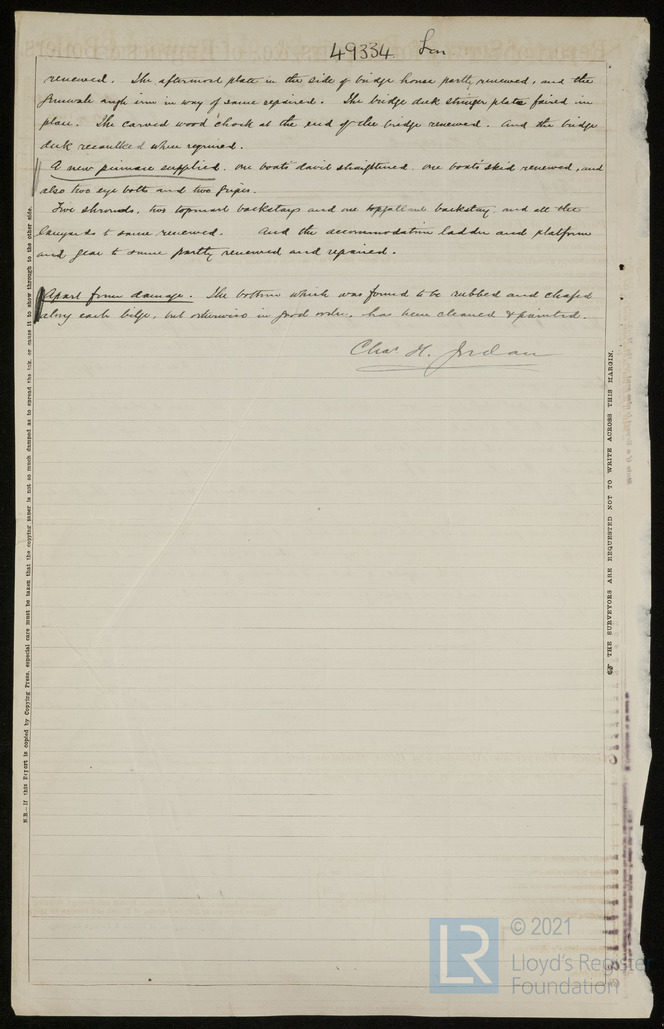 49334 Lon
renewed. The aftermost plate in the side of bridge house partly renewed, and the
gunwale angle iron in way of same repaired. The bridge deck stringer plate faired in
place. The carved wood chock at the end of the bridge renewed. And the bridge
deck recaulked where required.
A new pinnace supplied. one boats davit straightened. one boats skid renewed, and
also two eye bolts and two gripes.
Five shrouds, two topmast backstays and one topgallant backstay, and all the
lanyards to same renewed. And the accommodation ladder and platform
and gear to same partly renewed and repaired.
Apart from damage. The bottom which was found to be rubbed and chafed
along each bilge, but otherwise in good order, has been cleaned & painted.
Chas. H. Jordan
N.B.—If this Report is copied by Copying Press, especial care must be taken that the copying paper is not so much damped as to spread the ink, or cause it to show through to the other side.
THE SURVEYORS ARE REQUESTED NOT TO WRITE ACROSS THIS MARGIN.
LR
© 2021
Lloyd's Register
Foundation